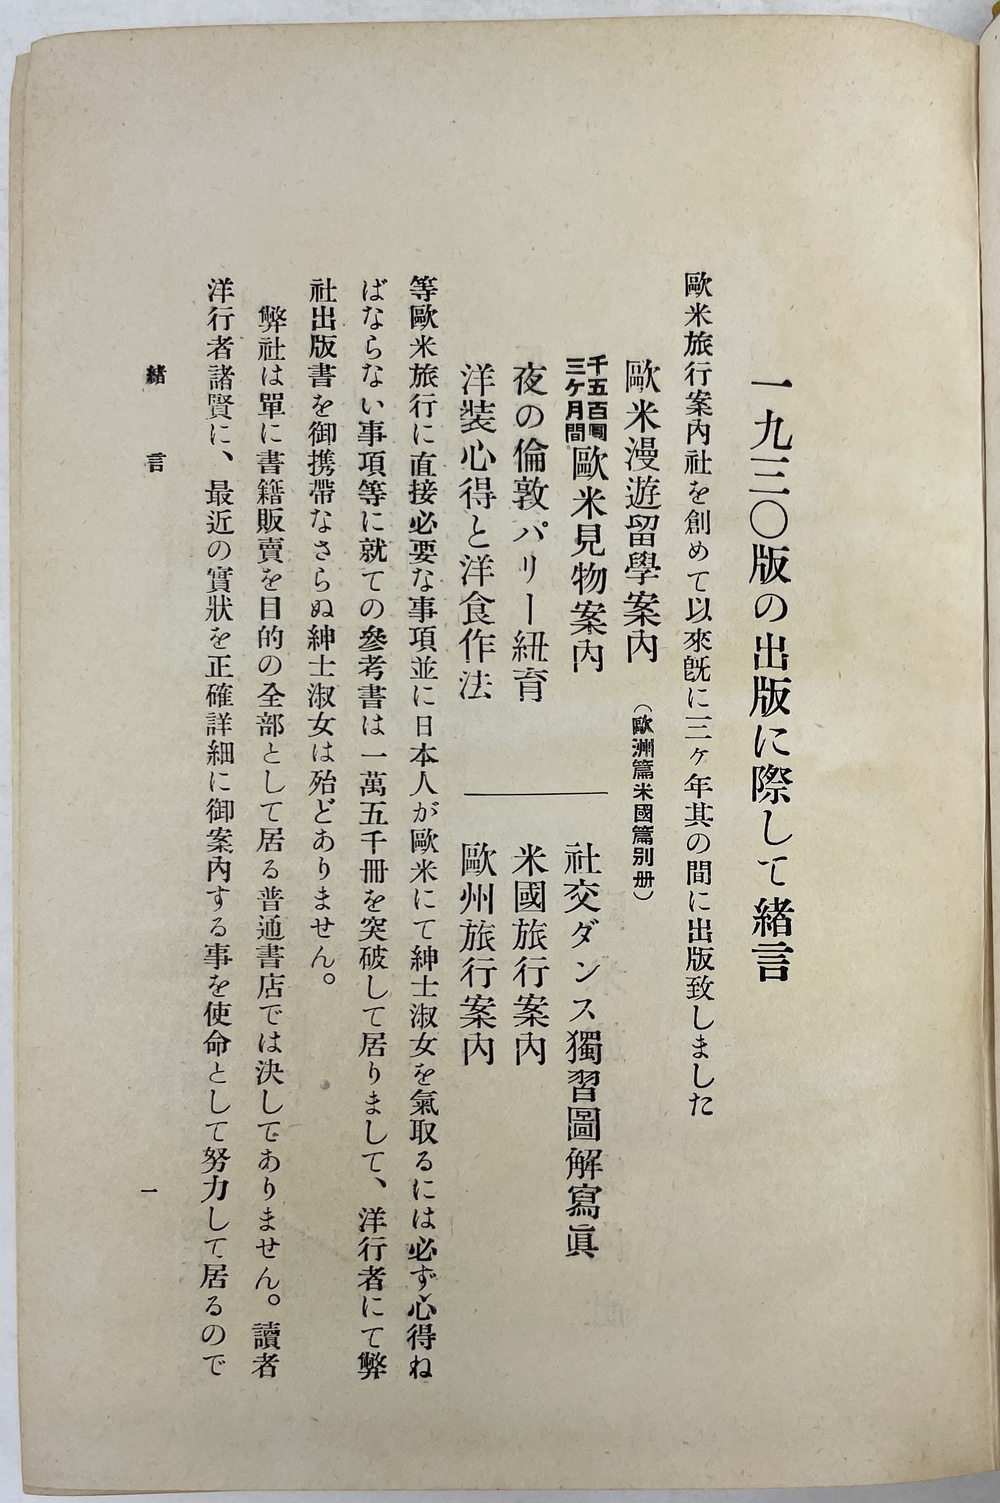 一九三〇版の出版に際して緒言
歐米旅行案内社を創めて以來既に三ヶ年其の間に出版致しました
歐米漫遊留學案内（歐洲篇米國篇別册）
千五百圓三ヶ月間歐米見物案内
社交ダンス獨習圖解寫眞
夜の倫敦パリー紐育
米國旅行案内
洋装心得と洋食作法
歐州旅行案内
等歐米旅行に直接必要な事項並に日本人が歐米にて紳士淑女を氣取るには必ず心得ね
ばならない事項等に就ての參考書は一萬五千冊を突破して居りまして、洋行者にて弊
社出版書を御携帶なさらぬ紳士淑女は殆どありません。
弊社は單に書籍販賣を目的の全部として居る普通書店では決してありません。讀者
洋行者諸賢に、最近の實狀を正確詳細に御案内する事を使命として努力して居るので
緒言
一